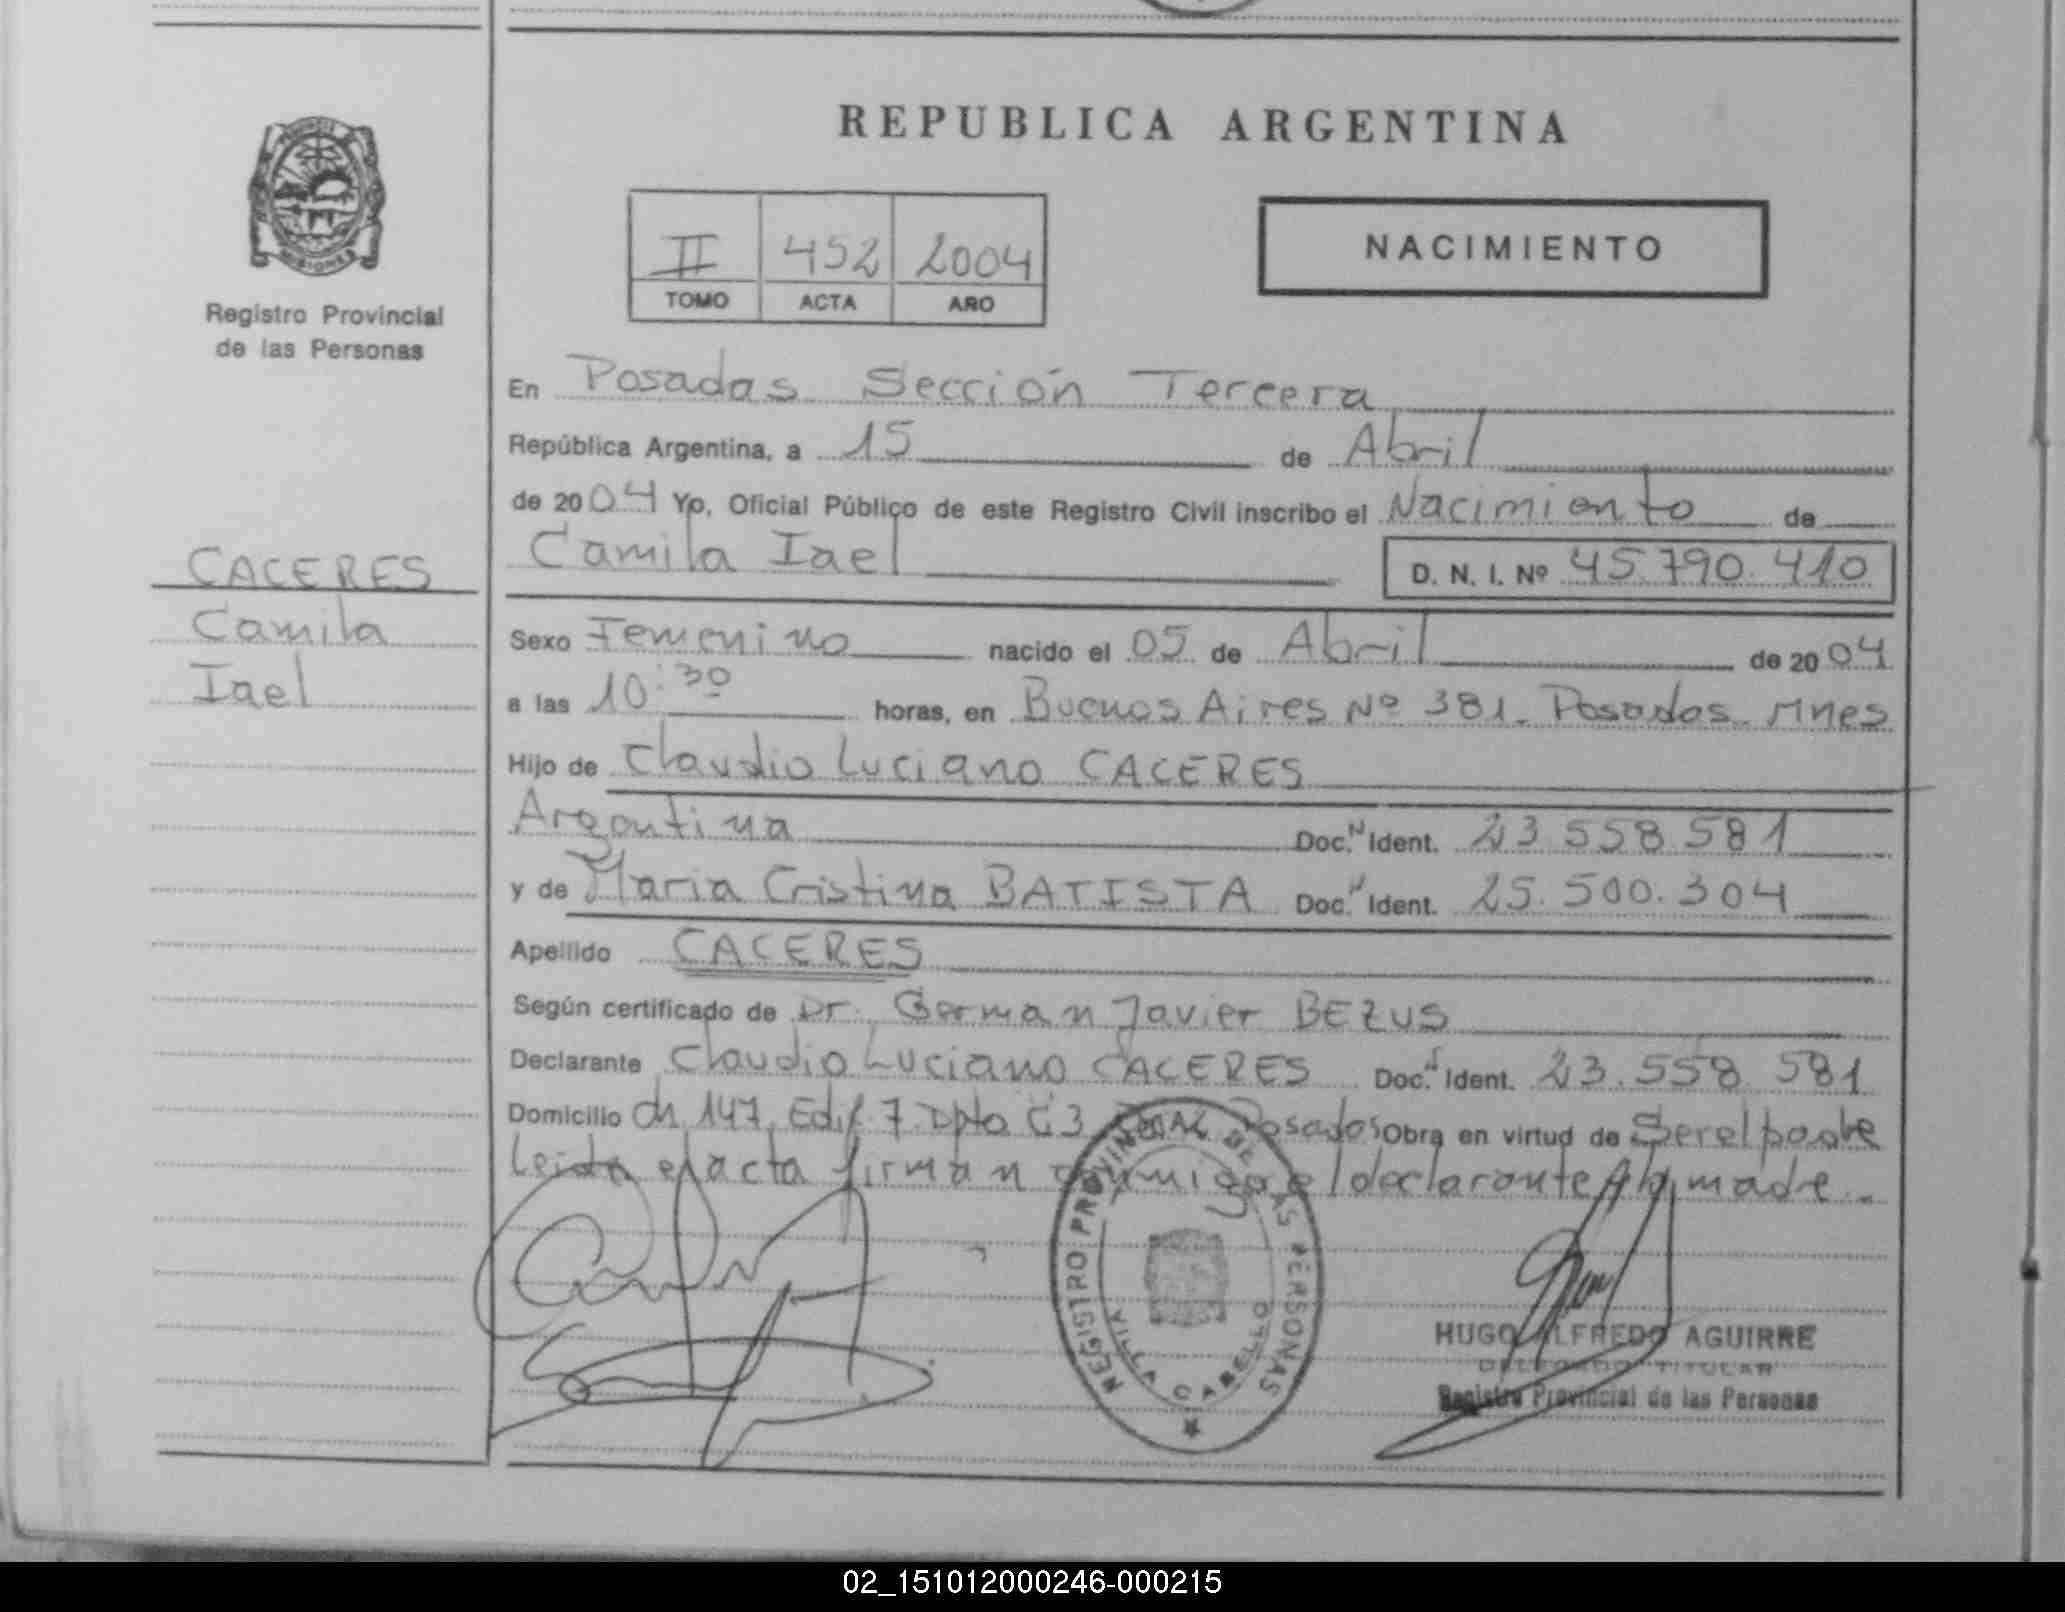 REPUBLICA ARGENTINA
MISIONES
Registro Provincial
de las Personas
II 452 2004
TOMO ACTA AÑO
NACIMIENTO
En Posadas Sección Tercera
República Argentina, a 15 de Abril
de 2004 Yo, Oficial Público de este Registro Civil inscribo el Nacimiento de
Camila Iael D. N. I. Nº 45.790.410
CACERES
Camila
Iael
Sexo Femenino nacido el 05 de Abril de 2004
a las 10:30 horas, en Buenos Aires Nº 381. Posadas. Mnes
Hijo de Claudio Luciano CACERES
Argentina Doc. Ident. 23.558.581
y de Maria Cristina BATISTA Doc. Ident. 25.500.304
Apellido CACERES
Según certificado de Dr. German Javier BEZUS
Declarante Claudio Luciano CACERES Doc. Ident. 23.558.581
Domicilio ch 147, Edif. 7 Dpto C 3 Posadas Obra en virtud de Ser el padre
Leida el acta firman conmigo el declarante y la madre.
REGISTRO PROVINCIAL DE LAS PERSONAS
VILLA CABELLO
HUGO ALFREDO AGUIRRE
DELEGADO TITULAR
Registro Provincial de las Personas
02_151012000246-000215